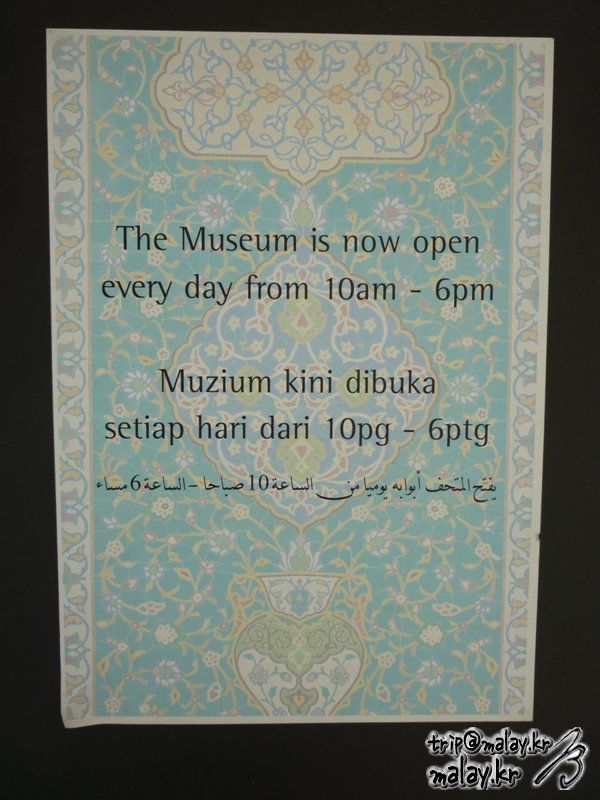 The Museum is now open
every day from 10am - 6pm
Muzium kini dibuka
setiap hari dari 10pg - 6ptg
يفتح المتحف أبوابه يوميا من الساعة 10 صباحا - الساعة 6 مساء
trip@malay.kr
malay.kr